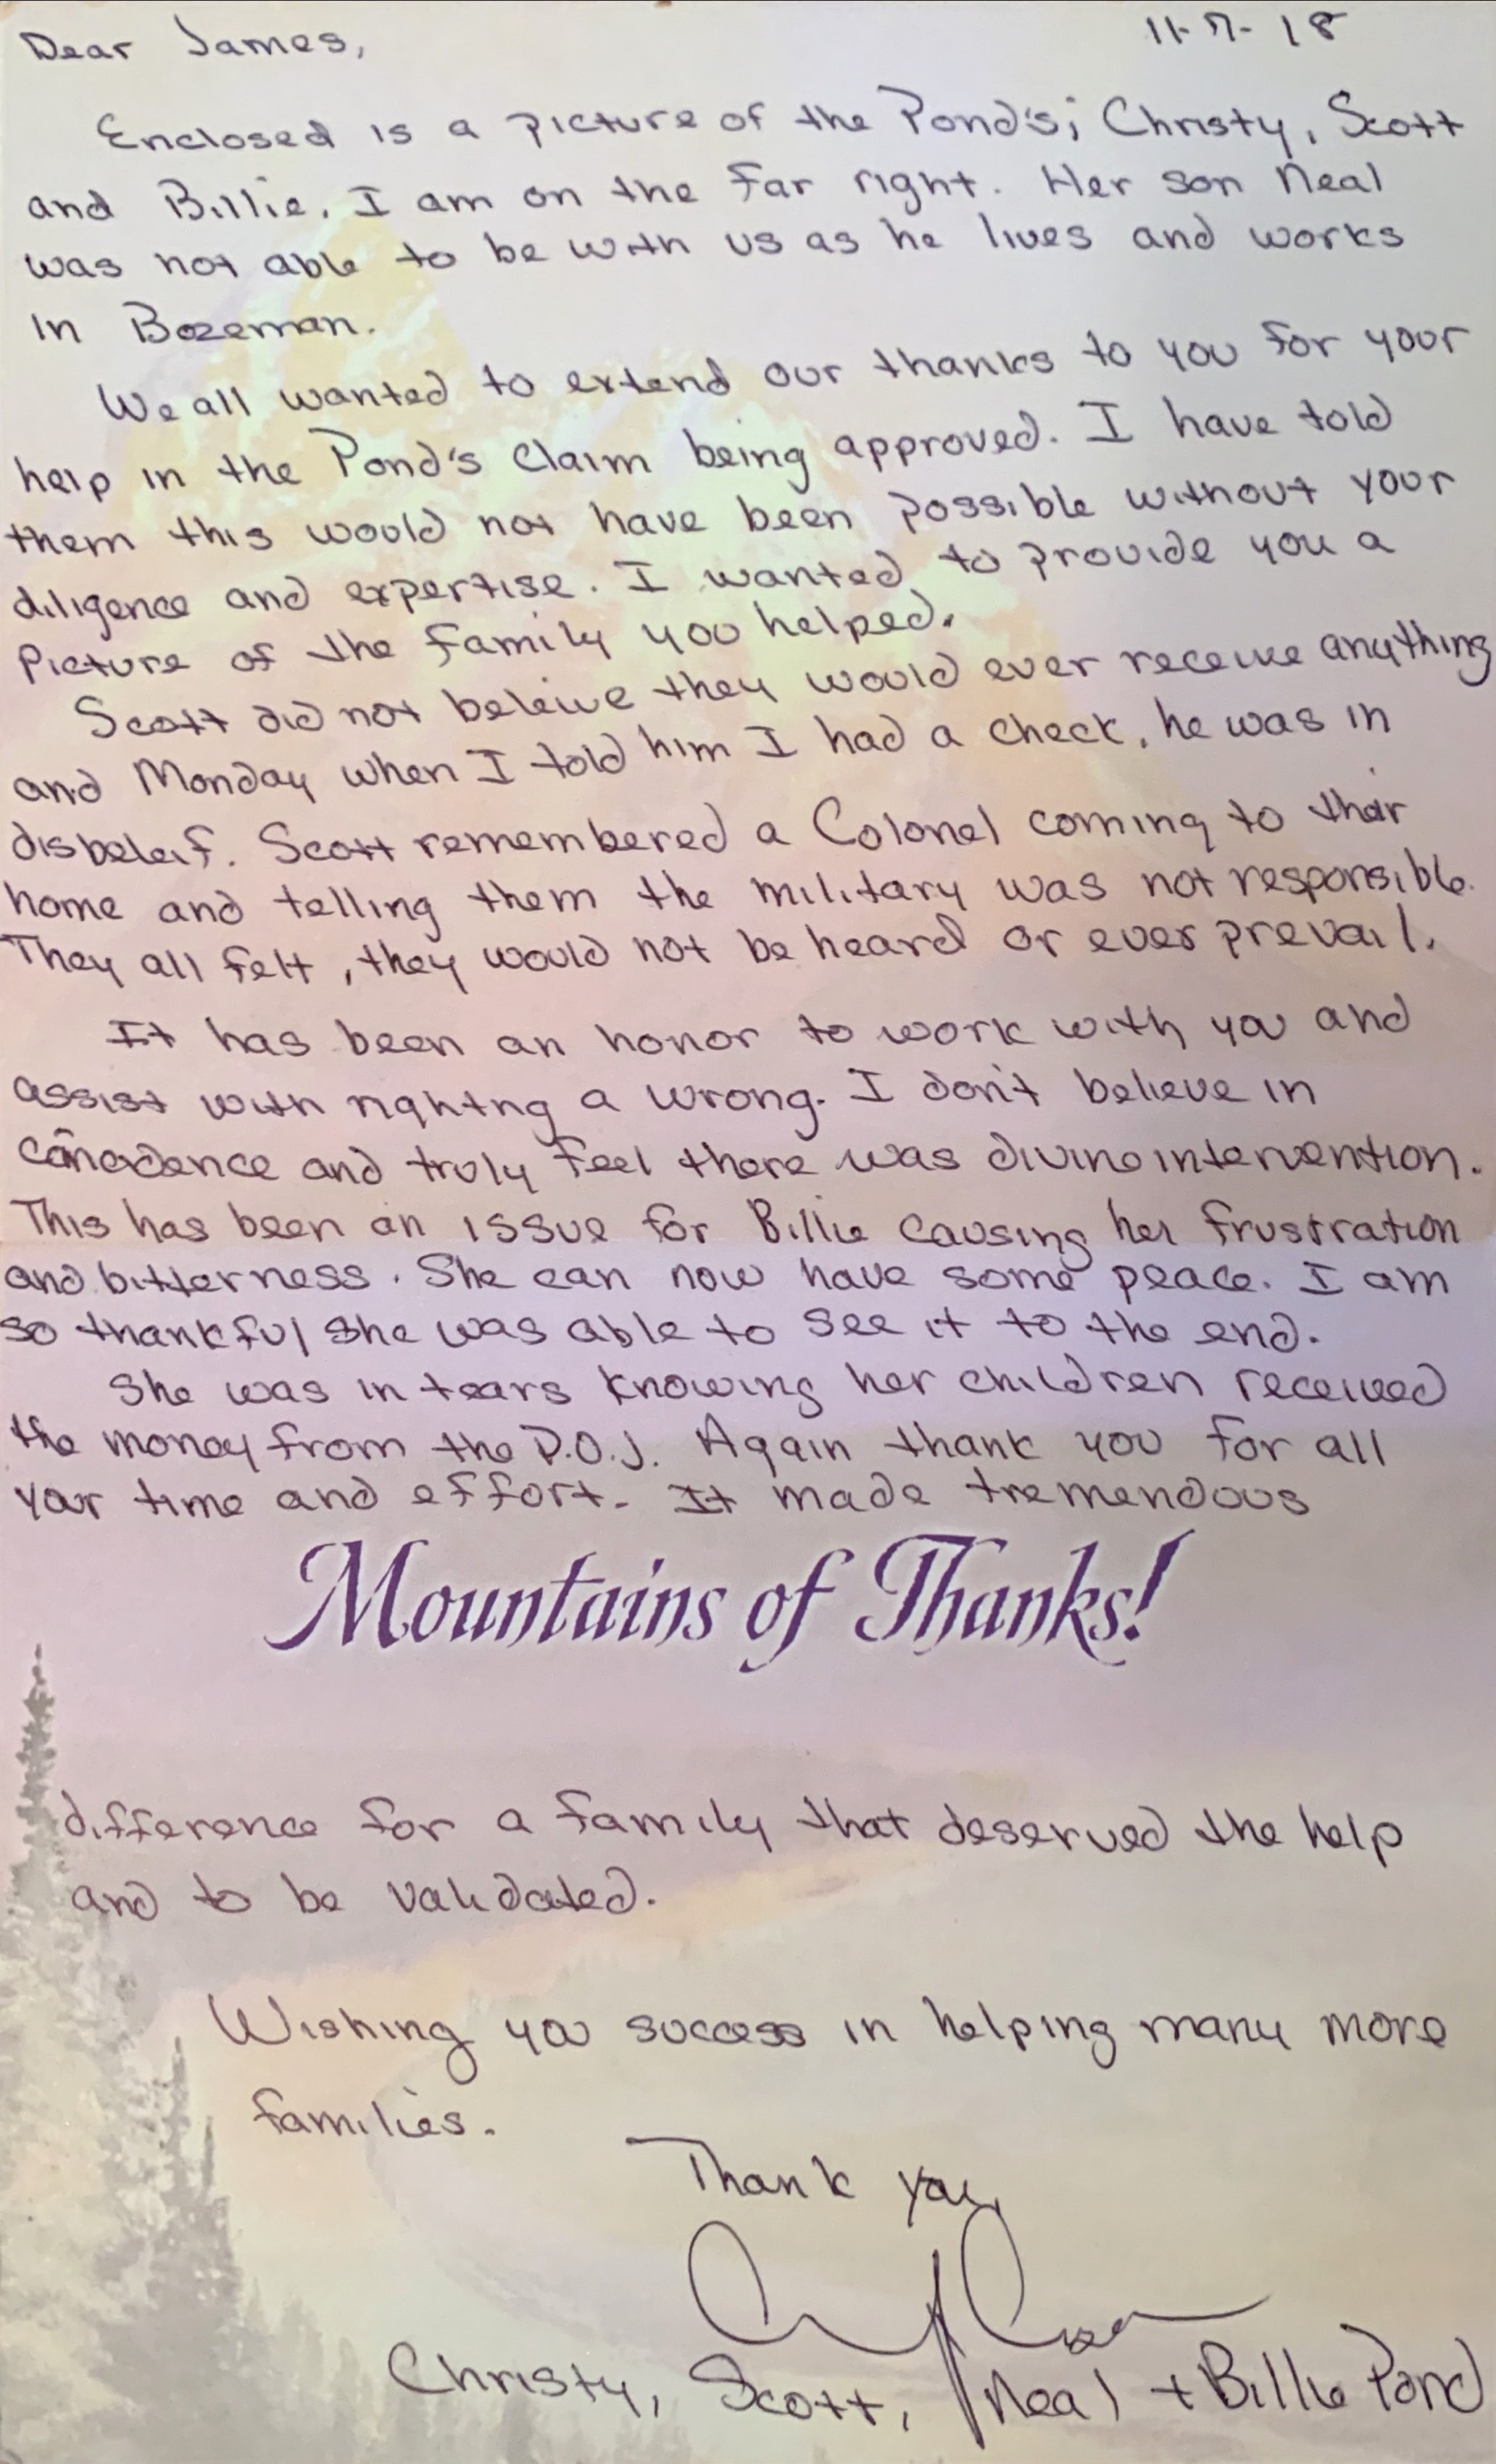 11-7-18
Dear James,
Enclosed is a picture of the Pond's; Christy, Scott
and Billie. I am on the far right. Her son Neal
was not able to be with us as he lives and works
in Bozeman.
We all wanted to extend our thanks to you for your
help in the Pond's claim being approved. I have told
them this would not have been possible without your
diligence and expertise. I wanted to provide you a
picture of the family you helped.
Scott did not beleive they would ever receive anything
and Monday when I told him I had a check, he was in
disbeleif. Scott remembered a Colonel coming to their
home and telling them the military was not responsible.
They all felt, they would not be heard or ever prevail.
It has been an honor to work with you and
assist with righting a wrong. I don't believe in
and truly feel there was divine intervention.
This has been an issue for Billie causing her frustration
and bitterness. She can now have some peace. I am
so thankful she was able to see it to the end.
She was in tears knowing her children received
the money from the D.O.J. Again thank you for all
your time and effort. It made tremendous
Mountains of Thanks!
difference for a family that deserved the help
and to be validated.
Wishing you success in helping many more
families.
Thank you,
Christy, Scott, Neal + Billie Pond